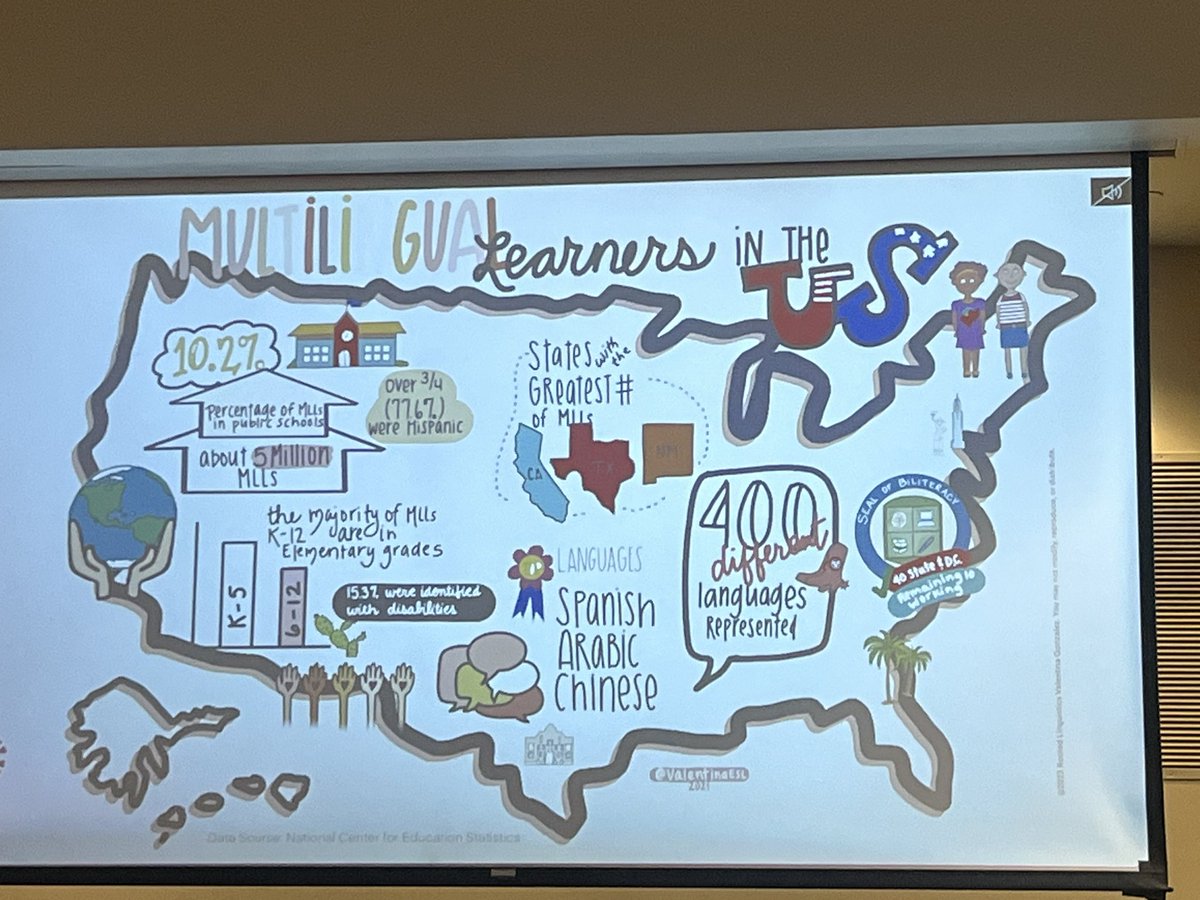 MULTILI GUAL Learners in THE US
10.2%
Percentage of MLLs
in public schools
about 5 Million
MLLs
Over 3/4
(77.6%)
were Hispanic
States with the
GReatest #
of MLLs
CA
TX
the majority of MLLs
K-12 are in
Elementary grades
K-5
6-12
15.3% were identified
with disabilities
LANGUAGES
Spanish
ARABIC
Chinese
400
different
languages
Represented
SEAL OF BILITERACY
40 State & D.C.
Remaining 10
Working
@ValentinaESL
2021
Data Sourse: National Center for Education Statistics
Valentina Gonzalez. You may not modify, reproduce, or distribute.